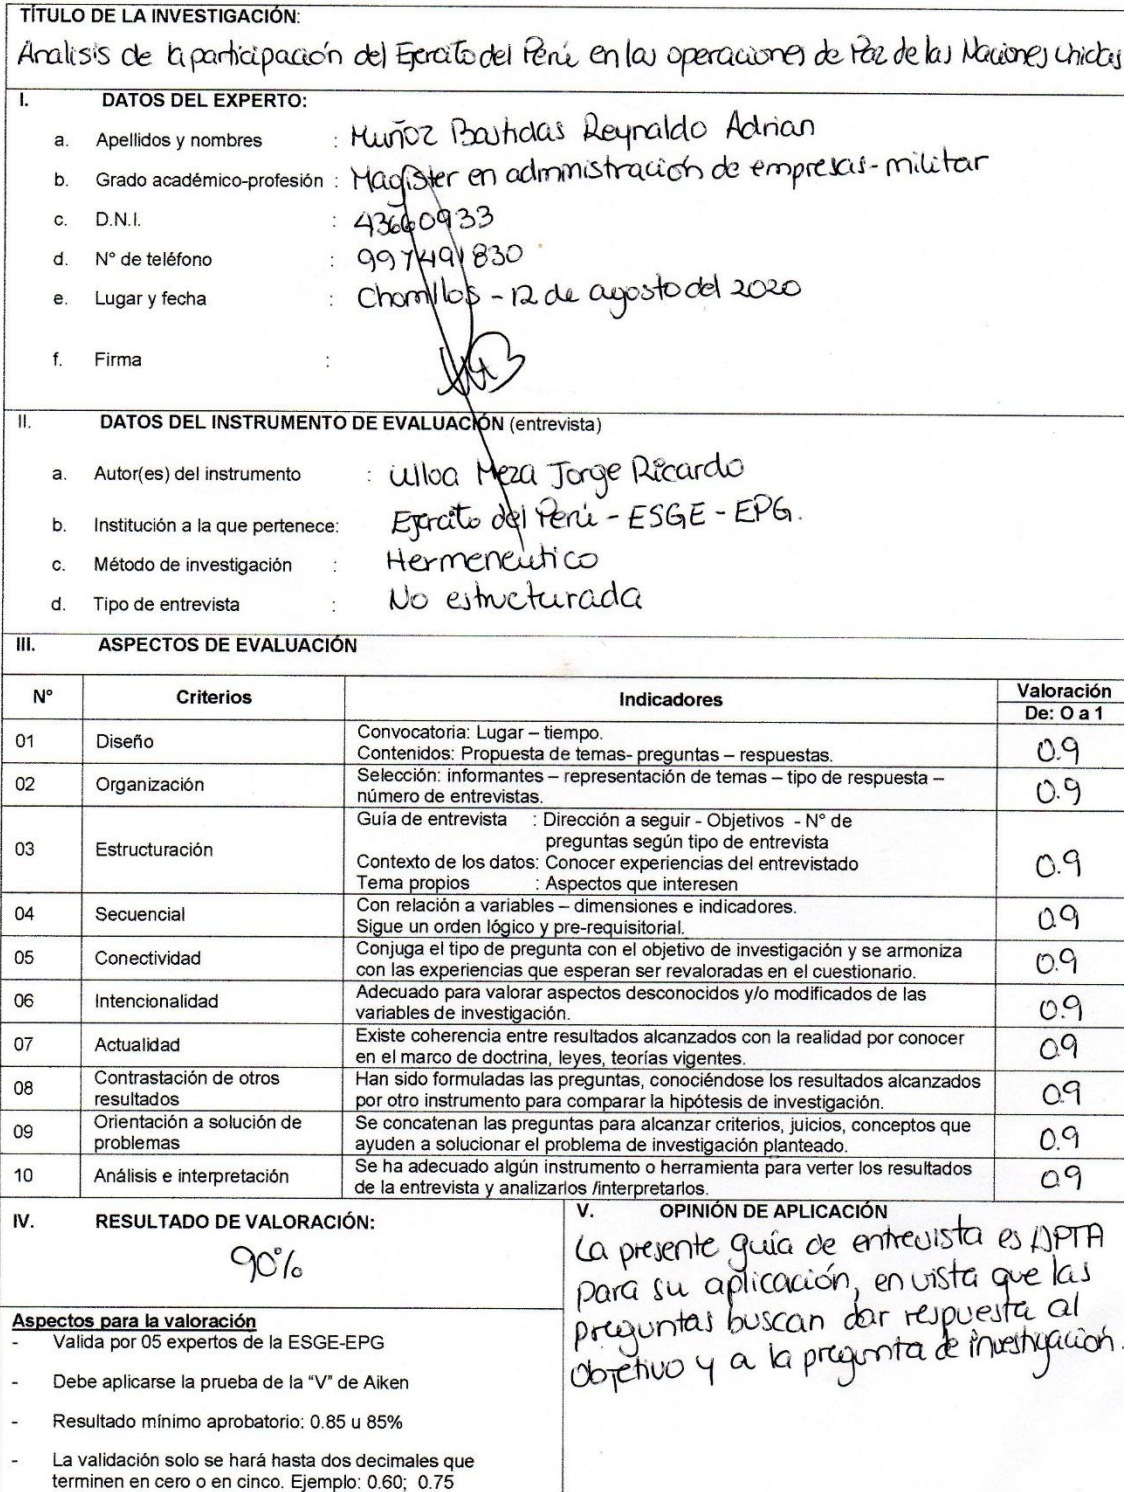 TÍTULO DE LA INVESTIGACIÓN:
Analisis de la participación del Ejercito del Perú en las operaciones de Paz de las Naciones Unidas
I. DATOS DEL EXPERTO:
a. Apellidos y nombres : Muñoz Bastidas Reynaldo Adrian
b. Grado académico-profesión : Magister en administración de empresas-militar
c. D.N.I. : 43660933
d. N° de teléfono : 997491830
e. Lugar y fecha : Chorrillos - 12 de agosto del 2020
f. Firma :
II. DATOS DEL INSTRUMENTO DE EVALUACIÓN (entrevista)
a. Autor(es) del instrumento : Ulloa Meza Jorge Ricardo
b. Institución a la que pertenece: Ejercito del Perú - ESGE - EPG.
c. Método de investigación : Hermeneútico
d. Tipo de entrevista : No estructurada
III. ASPECTOS DE EVALUACIÓN
N° Criterios Indicadores Valoración
De: O a 1
01 Diseño Convocatoria: Lugar – tiempo.
Contenidos: Propuesta de temas- preguntas – respuestas. 0.9
02 Organización Selección: informantes – representación de temas – tipo de respuesta –
número de entrevistas. 0.9
Guía de entrevista : Dirección a seguir - Objetivos - N° de
preguntas según tipo de entrevista
03 Estructuración Contexto de los datos: Conocer experiencias del entrevistado 0.9
Tema propios : Aspectos que interesen
04 Secuencial Con relación a variables – dimensiones e indicadores.
Sigue un orden lógico y pre-requisitorial. 0.9
05 Conectividad Conjuga el tipo de pregunta con el objetivo de investigación y se armoniza
con las experiencias que esperan ser revaloradas en el cuestionario. 0.9
06 Intencionalidad Adecuado para valorar aspectos desconocidos y/o modificados de las
variables de investigación. 0.9
07 Actualidad Existe coherencia entre resultados alcanzados con la realidad por conocer
en el marco de doctrina, leyes, teorías vigentes. 0.9
08 Contrastación de otros resultados Han sido formuladas las preguntas, conociéndose los resultados alcanzados
por otro instrumento para comparar la hipótesis de investigación. 0.9
09 Orientación a solución de problemas Se concatenan las preguntas para alcanzar criterios, juicios, conceptos que
ayuden a solucionar el problema de investigación planteado. 0.9
10 Análisis e interpretación Se ha adecuado algún instrumento o herramienta para verter los resultados
de la entrevista y analizarlos /interpretarlos. 0.9
IV. RESULTADO DE VALORACIÓN:
90%
Aspectos para la valoración
- Valida por 05 expertos de la ESGE-EPG
- Debe aplicarse la prueba de la “V” de Aiken
- Resultado mínimo aprobatorio: 0.85 u 85%
- La validación solo se hará hasta dos decimales que
terminen en cero o en cinco. Ejemplo: 0.60; 0.75
V. OPINIÓN DE APLICACIÓN
La presente guía de entrevista es APTA
para su aplicación, en vista que las
preguntas buscan dar respuesta al
objetivo y a la pregunta de investigación.